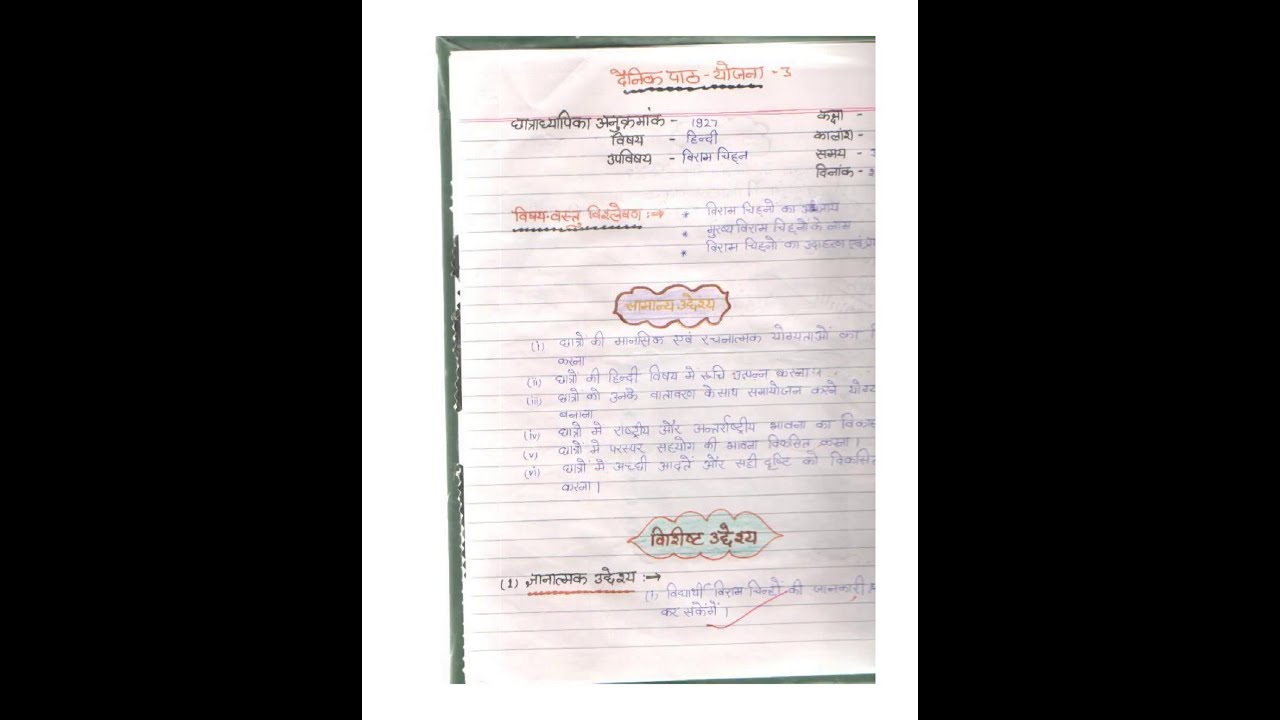 दैनिक पाठ - योजना - 3
छात्राध्यापिका अनुक्रमांक - 1927
कक्षा -
विषय - हिन्दी
कालांश -
उपविषय - विराम चिह्न
समय -
दिनांक -
विषय-वस्तु विश्लेषण :→ * विराम चिह्नो का
* मुख्य विराम चिह्नो के नाम
* विराम चिह्नो का एवं
सामान्य उद्देश्य
(i) छात्रों की मानसिक एवं रचनात्मक योग्यताओं का
करना
(ii) छात्रो की हिन्दी विषय मे रूचि उत्पन्न करना।
(iii) छात्रो को उनके वातावरण के साथ समायोजन करने योग्य
बनाना
(iv) छात्रो मे राष्ट्रीय और अन्तर्राष्ट्रीय भावना का
(v) छात्रो मे परस्पर सहयोग की भावना विकसित करना।
(vi) छात्रों मे अच्छी आदतें और सही दृष्टि को विकसित
करना।
विशिष्ट उद्देश्य
(1) ज्ञानात्मक उद्देश्य :→
(i) विद्यार्थी विराम चिन्हों की जानकारी
कर सकेंगें।